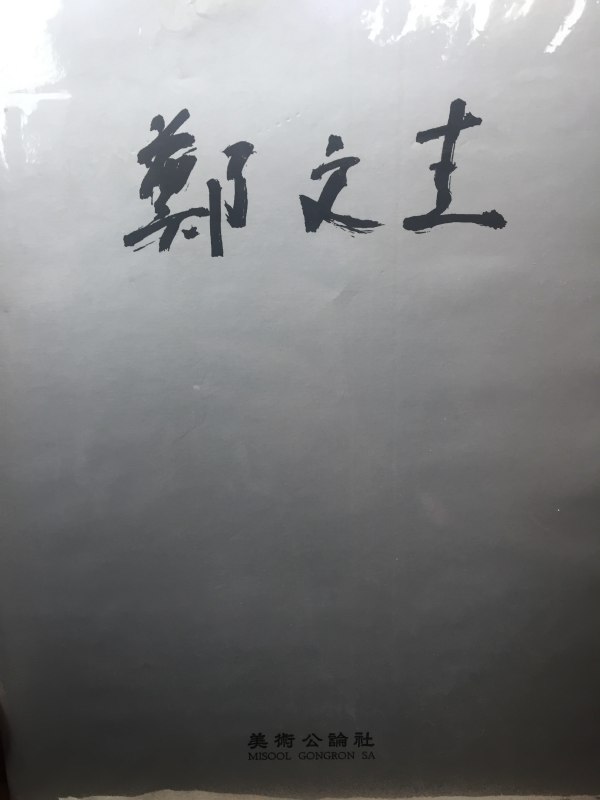 鄭文圭
美術公論社
MISOOL GONGRON SA